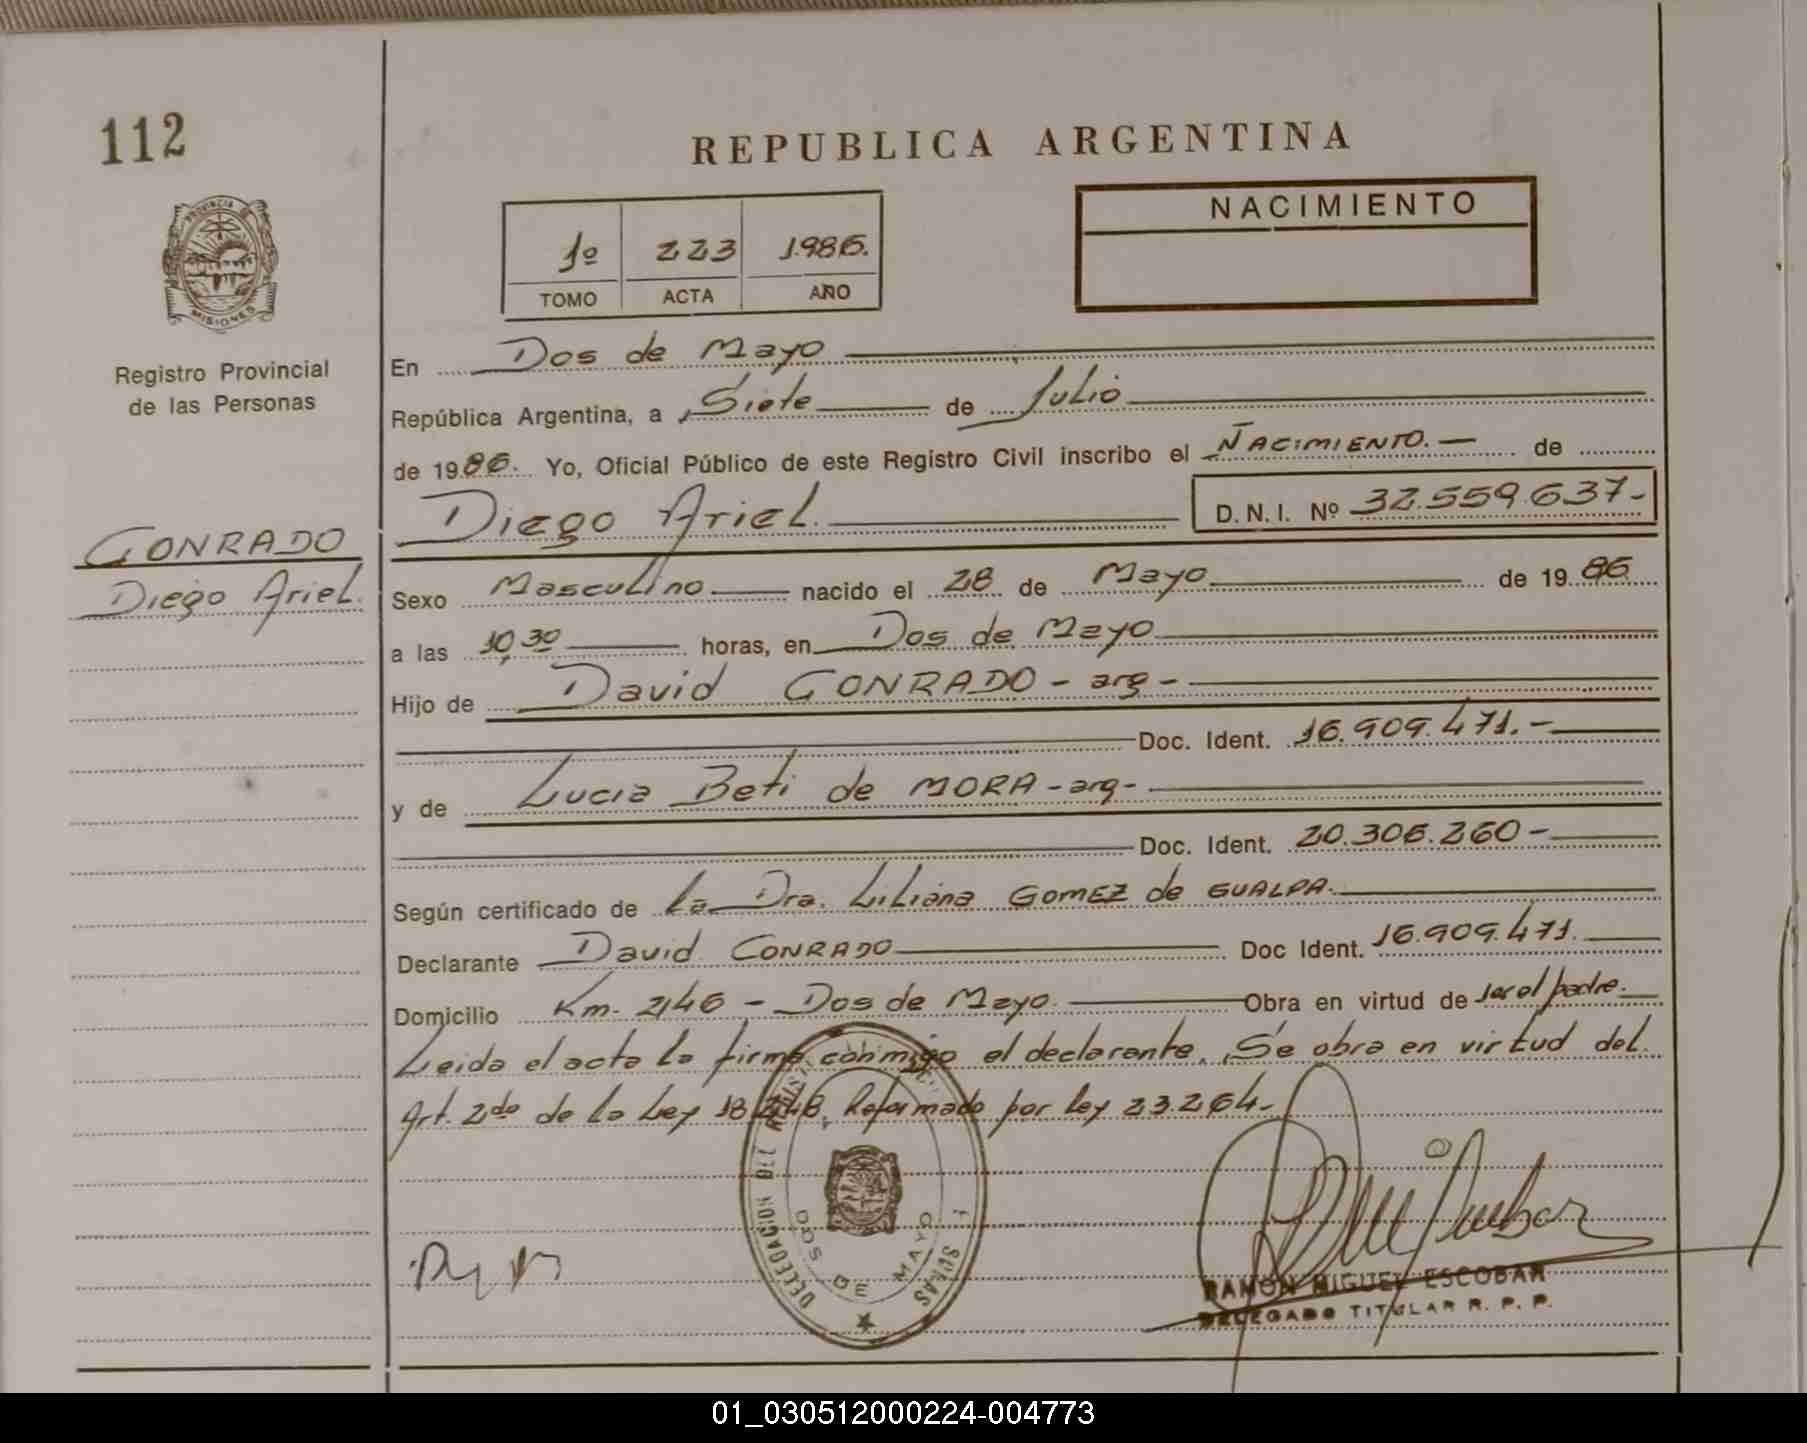 112
REPUBLICA ARGENTINA
PROVINCIA DE
MISIONES
Registro Provincial
de las Personas
1º 223 1.986.
TOMO ACTA AÑO
NACIMIENTO
En Dos de Mayo
República Argentina, a Siete de Julio
de 1986. Yo, Oficial Público de este Registro Civil inscribo el NACIMIENTO.- de
Diego Ariel. D.N.I. Nº 32.559.637-
CONRADO
Diego Ariel.
Sexo Masculino nacido el 28 de Mayo de 1986
a las 10,30 horas, en Dos de Mayo
Hijo de David CONRADO - arg -
Doc. Ident. 16.909.471.-
y de Lucia Beti de MORA - arg -
Doc. Ident. 20.306.260-
Según certificado de La Dra. Liliana GOMEZ de GUALPA.
Declarante David CONRADO Doc Ident. 16.909.471.
Domicilio Km. 246 - Dos de Mayo. Obra en virtud de ser el padre.
Leida el acta la firma conmigo el declarante. Se obra en virtud del
Art. 2do de la Ley 18.248. Reformado por ley 23.264-
DELEGACION DEL
DOS DE MAYO
RAMON MIGUEL ESCOBAR
DELEGADO TITULAR R. P. P.
01_030512000224-004773